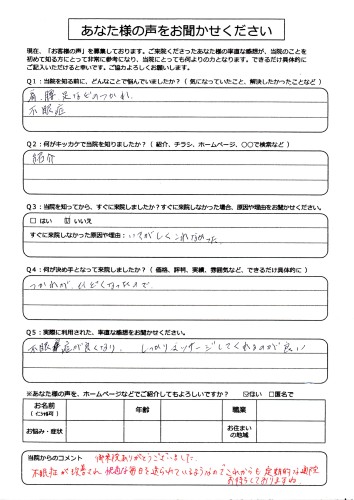 あなた様の声をお聞かせください
現在、「お客様の声」を募集しております。ご来院くださったあなた様の率直な感想が、当院のことを
初めて知る方にとって非常に参考になり、当院にとっても何よりの力となります。できるだけ具体的に
ご記入いただけると幸いです。ご協力よろしくお願いします。
Q1:当院を知る前に、どんなことで悩んでいましたか?(気になっていたこと、解決したかったことなど)
肩、腰 足などのつかれ
不眠症
Q2:何がキッカケで当院を知りましたか?(紹介、チラシ、ホームページ、○○で検索など)
紹介
Q3:当院を知ってから、すぐに来院しましたか?すぐに来院しなかった場合、原因や理由をお聞かせください。
□はい ☑いいえ
すぐに来院しなかった原因や理由:いそがしくこれなかった
Q4:何が決め手となって来院しましたか?(価格、評判、実績、雰囲気など、できるだけ具体的に)
つかれが、ひどくなったので
Q5:実際に利用された、率直な感想をお聞かせください。
不眠症が良くなり、しっかりマッサージしてくれるのが良い
※あなた様の声を、ホームページなどでご紹介してもよろしいですか? ☑はい □匿名で
お名前 年齢 職業
(イニシャル可)
お悩み・症状 お住まい
の地域
当院からのコメント 御来院ありがとうございました。
不眠症が改善され 快適な毎日を送られているようなのでこれからも 定期的な通院
お待ちしておりますね